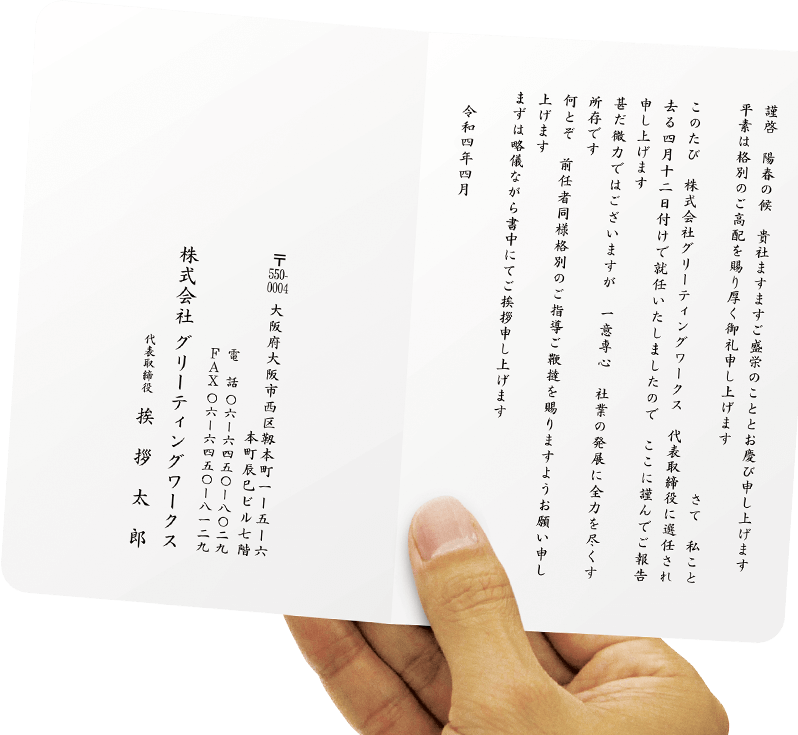 謹啓　陽春の候　貴社ますますご盛栄のこととお慶び申し上げます
平素は格別のご高配を賜り厚く御礼申し上げます
さて　私こと
このたび　株式会社グリーティングワークス　代表取締役に選任され
去る四月十二日付けで就任いたしましたので　ここに謹んでご報告
申し上げます
甚だ微力ではございますが　一意専心　社業の発展に全力を尽くす
所存です
何とぞ　前任者同様格別のご指導ご鞭撻を賜りますようお願い申し
上げます
まずは略儀ながら書中にてご挨拶申し上げます
令和四年四月
〒550-0004　大阪府大阪市西区靱本町一ー五ー六
本町辰巳ビル七階
電　話　〇六ー六四五〇ー八〇二九
ＦＡＸ〇六ー六四五〇ー八一二九
株式会社　グリーティングワークス
代表取締役　挨　拶　太　郎